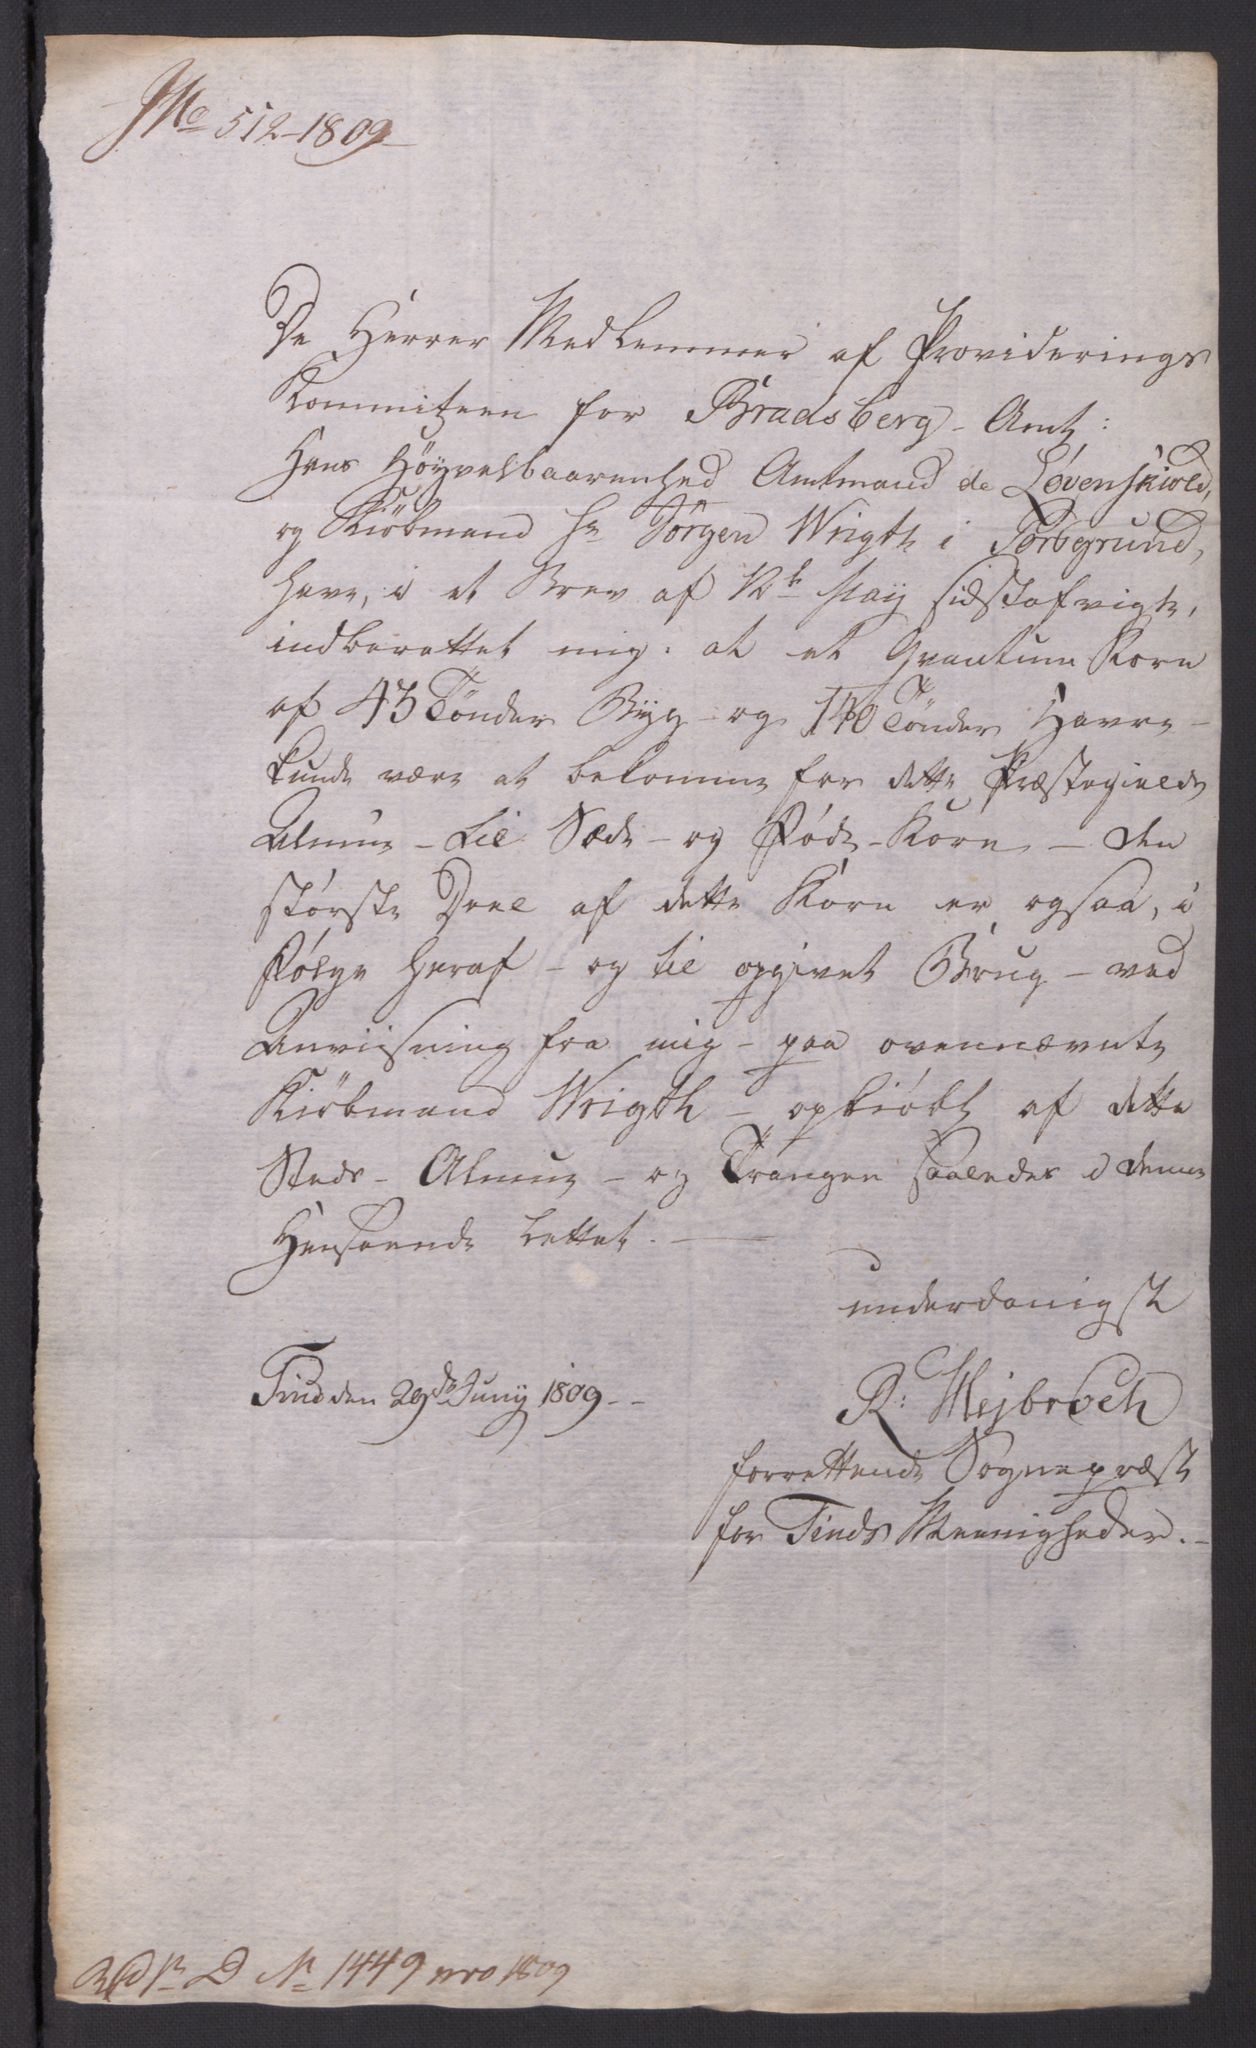 No 512-1809
De Herrer Medlemmer af Providerings
Kommitzeen for Bradsberg-Amt:
Hans Höyvelbaarenhed Amtmand de Løvenskiold,
og Kiöbmand Hr Jörgen Wrigth i Porsgrund,
have, i et Brev af 12te May sidstafvigte,
indberettet mig: at et Qvantum Korn
af 43 Tönder Byg - og 140 Tönder Havre -
kunde være at bekomme for dette Præstegields
Almue - til Sæde - og Föde-Korn - den
störste Deel af dette Korn er ogsaa, i
Fölge heraf - og til opgivet Brug - ved
Anviisning fra mig - paa ovennævnte
Kiöbmand Wrigth - opkiöbt af dette
Steds - Almue - og Trangen saaledes i denne
Henseende lettet. -
underdanigst
Tind den 29de Juny 1809 - -
R: Mejbröch
forrettende Sognepræst
for Tinds Meenigheder. -
D No 1449 pro 1809